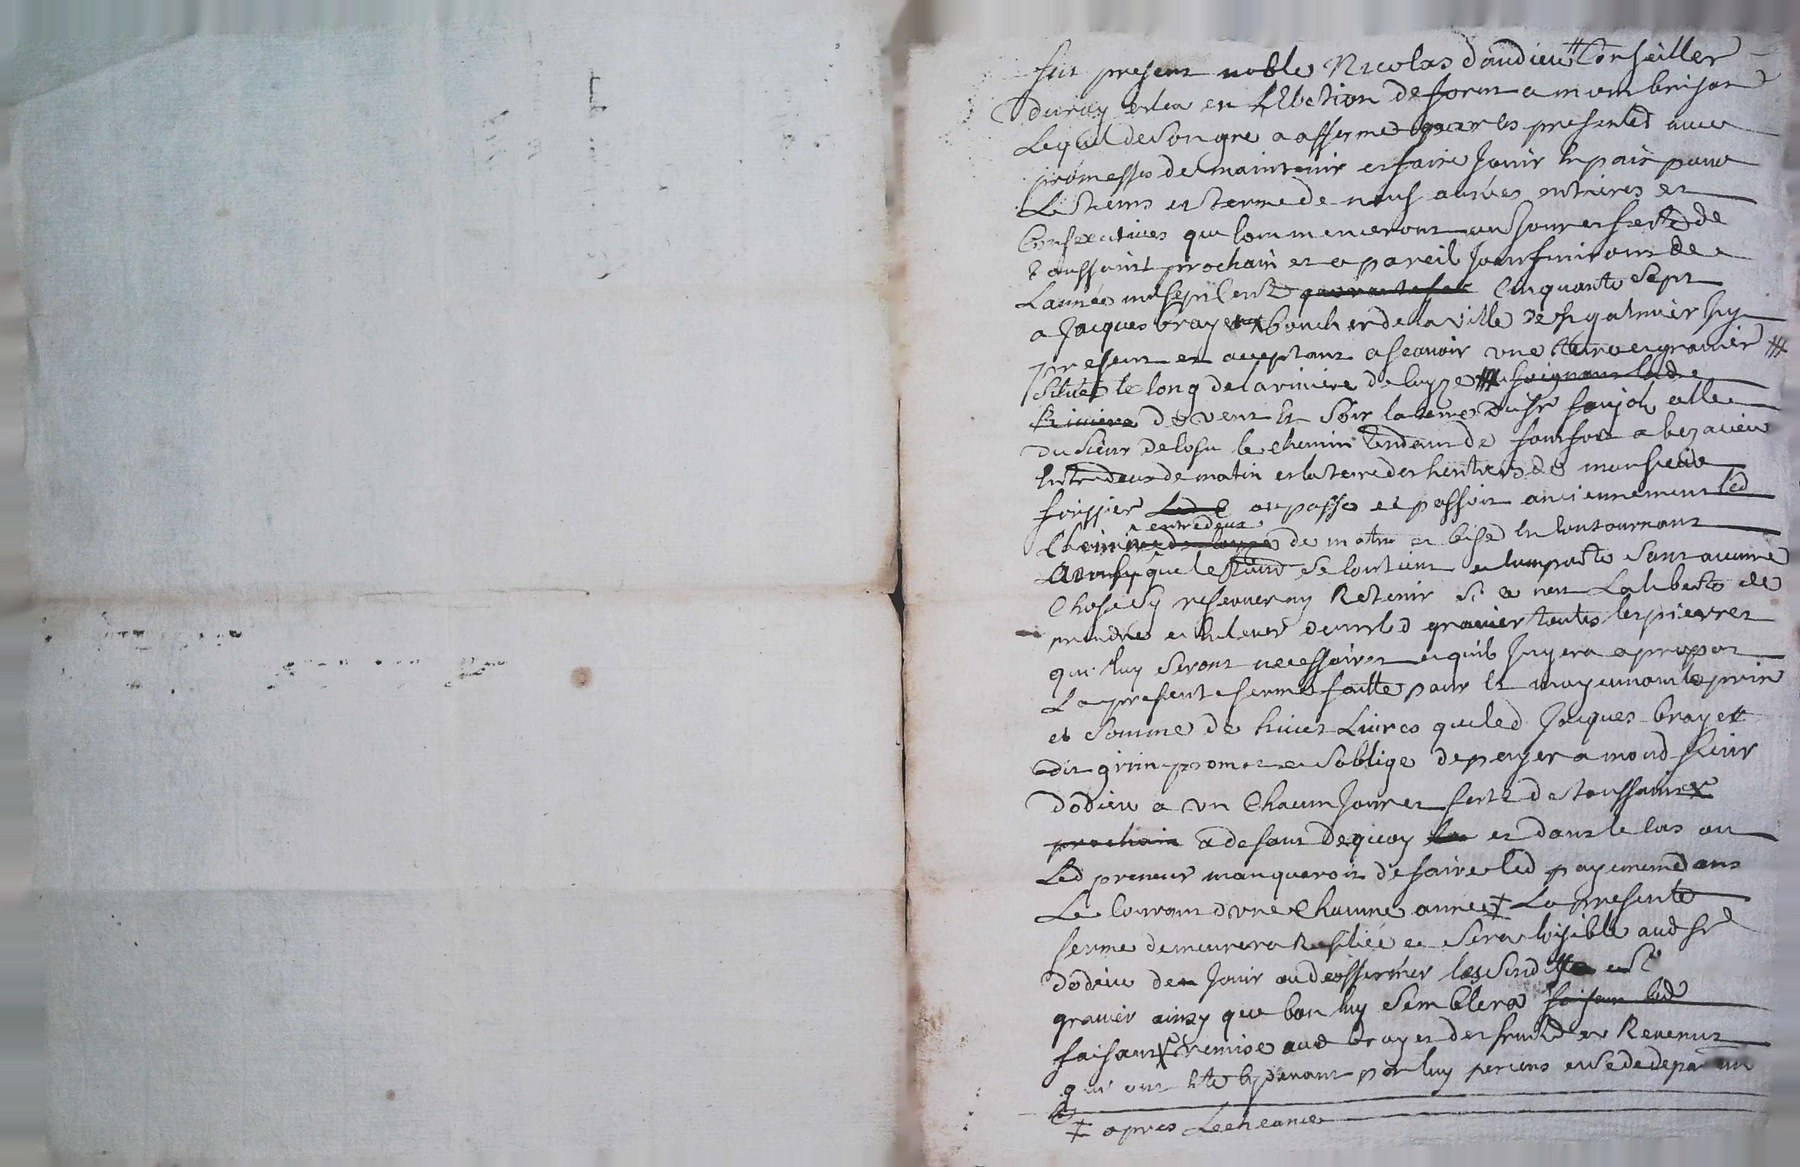 fut present noble Nicolas dandieu Conseiller
du roy esleu en L'Election de forest a montbrison
Lequel de son gre a affermé par les presentes avec
promesses de maintenir et faire jouir en paix pour
Le tems et terme de neuf années entieres et
Consecutives que commenceront au jour et feste de
toussaint prochain et a pareil jour finiront de
L'année mil sept Cent Cinquante Sept
a Jacques brayet boucher de la ville de St galmier icy
present et acceptant a scavoir une terre et gravier #
Situés le long de la riviere de loyze joignant ladte
Riviere de vent et soir la terre du Sr faujol celle
du Sieur delosu le chemin tendant de a
Entredeux de matin et la terre des heritiers de monsieur
ou passe et passoit anciennement led
Chemin entredeux de matin et bise En contournant
que le tout se contient et comporte sans aucune
Chose y reserver ny Retenir Si ce nest La liberté de
prendre et Enlever dans led gravier toutes les pierres
qui luy seront necessaires et quil jugera a propos
La presente ferme faitte pour et moyennant le prix
et Somme de huict Livres que led Jacques brayet
dit grim promet et soblige de payer a mond Sieur
dodieu a un Chacun jour et feste de toussaint
prochain a defaut de quoy et dans le cas ou
Led preneur manqueroit de faire led payement dans
Le Courant d'une Chacune année ‡ La presente
ferme demeurera Resiliée et sera loisible aud Sr
dodieu den jouir ou daffermer lesd et
gravier ainsy que bon luy Semblera faisant lad
faisant remise aud brayet des fruits et Revenus
qui ont eté cy devant par luy percus
‡ apres Lecheance